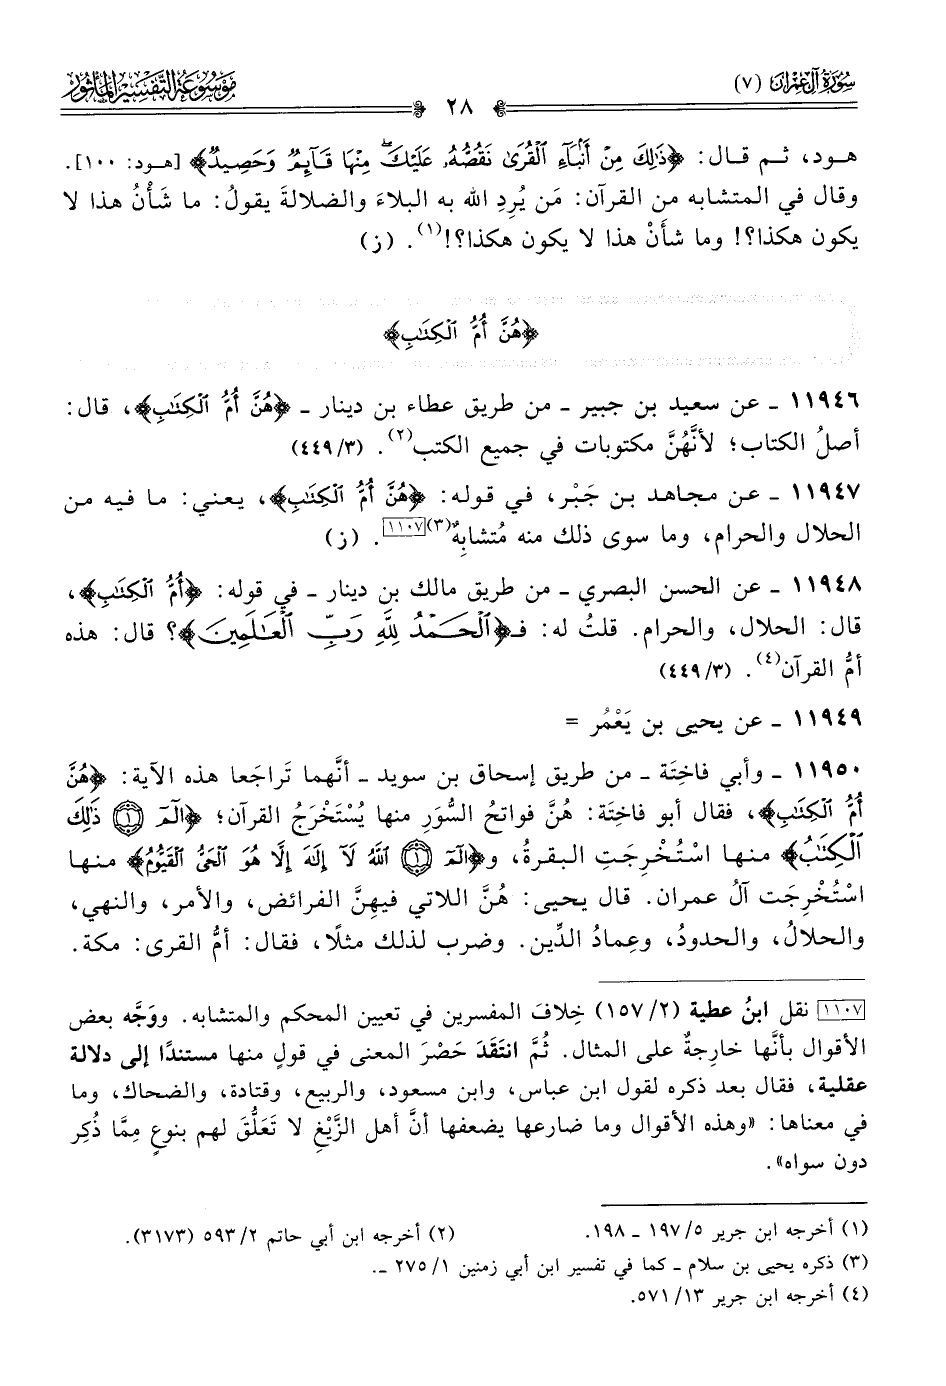 سُورَةُ آلِ عِمْرَانَ (٧)
٢٨
مَوْسُوعَةُ التَّفْسِيرِ المَأْثُورِ
هود، ثم قال: ﴿ذَٰلِكَ مِنْ أَنۢبَآءِ ٱلْقُرَىٰ نَقُصُّهُۥ عَلَيْكَ ۖ مِنْهَا قَآئِمٌ وَحَصِيدٌ﴾ [هود: ١٠٠].
وقال في المتشابه من القرآن: مَن يُرِدِ الله به البلاءَ والضلالةَ يقولُ: ما شَأْنُ هذا لا
يكون هكذا؟! وما شأنْ هذا لا يكون هكذا؟!(١). (ز)
﴿هُنَّ أُمُّ ٱلْكِتَٰبِ﴾
١١٩٤٦ ـ عن سعيد بن جبير ـ من طريق عطاء بن دينار ـ ﴿هُنَّ أُمُّ ٱلْكِتَٰبِ﴾، قال:
أصلُ الكتاب؛ لأنَّهُنَّ مكتوبات في جميع الكتب(٢). (٤٤٩/٣)
١١٩٤٧ ـ عن مجاهد بن جَبْر، في قوله: ﴿هُنَّ أُمُّ ٱلْكِتَٰبِ﴾، يعني: ما فيه من
الحلال والحرام، وما سوى ذلك منه مُتشابِهٌ(٣)[١١٠٧]. (ز)
١١٩٤٨ ـ عن الحسن البصري ـ من طريق مالك بن دينار ـ في قوله: ﴿أُمُّ ٱلْكِتَٰبِ﴾،
قال: الحلال، والحرام. قلتُ له: فـ﴿ٱلْحَمْدُ لِلَّهِ رَبِّ ٱلْعَٰلَمِينَ﴾؟ قال: هذه
أمُّ القرآن(٤). (٤٤٩/٣)
١١٩٤٩ ـ عن يحيى بن يَعْمُر =
١١٩٥٠ ـ وأبي فاخِتَة ـ من طريق إسحاق بن سويد ـ أنَّهما تَراجَعا هذه الآية: ﴿هُنَّ
أُمُّ ٱلْكِتَٰبِ﴾، فقال أبو فاخِتَة: هُنَّ فواتحُ السُّوَرِ منها يُسْتَخْرَجُ القرآن؛ ﴿الٓمٓ ١ ذَٰلِكَ
ٱلْكِتَٰبُ﴾ منها اسْتُخْرِجَتِ البقرةُ، و﴿الٓمٓ ١ ٱللَّهُ لَآ إِلَٰهَ إِلَّا هُوَ ٱلْحَىُّ ٱلْقَيُّومُ﴾ منها
اسْتُخْرِجَت آلُ عمران. قال يحيى: هُنَّ اللاتي فيهِنَّ الفرائض، والأمر، والنهي،
والحلالُ، والحدودُ، وعِمادُ الدِّين. وضرب لذلك مثلًا، فقال: أمُّ القرى: مكة.
[١١٠٧] نقل ابنُ عطية (٢/ ١٥٧) خِلافَ المفسرين في تعيين المحكم والمتشابه. ووَجَّه بعض
الأقوال بأنَّها خارجةٌ على المثال. ثُمَّ انتقَدَ حَصْرَ المعنى في قولٍ منها مستندًا إلى دلالة
عقلية، فقال بعد ذكره لقول ابن عباس، وابن مسعود، والربيع، وقتادة، والضحاك، وما
في معناها: «وهذه الأقوال وما ضارعها يضعفها أنَّ أهل الزَّيْغِ لا تَعَلُّقَ لهم بنوعٍ مِمَّا ذُكِر
دون سواه».
(١) أخرجه ابن جرير ٥/ ١٩٧ ـ ١٩٨. (٢) أخرجه ابن أبي حاتم ٢/ ٥٩٣ (٣١٧٣).
(٣) ذكره يحيى بن سلام ـ كما في تفسير ابن أبي زمنين ١/ ٢٧٥ ـ.
(٤) أخرجه ابن جرير ١٣/ ٥٧١.